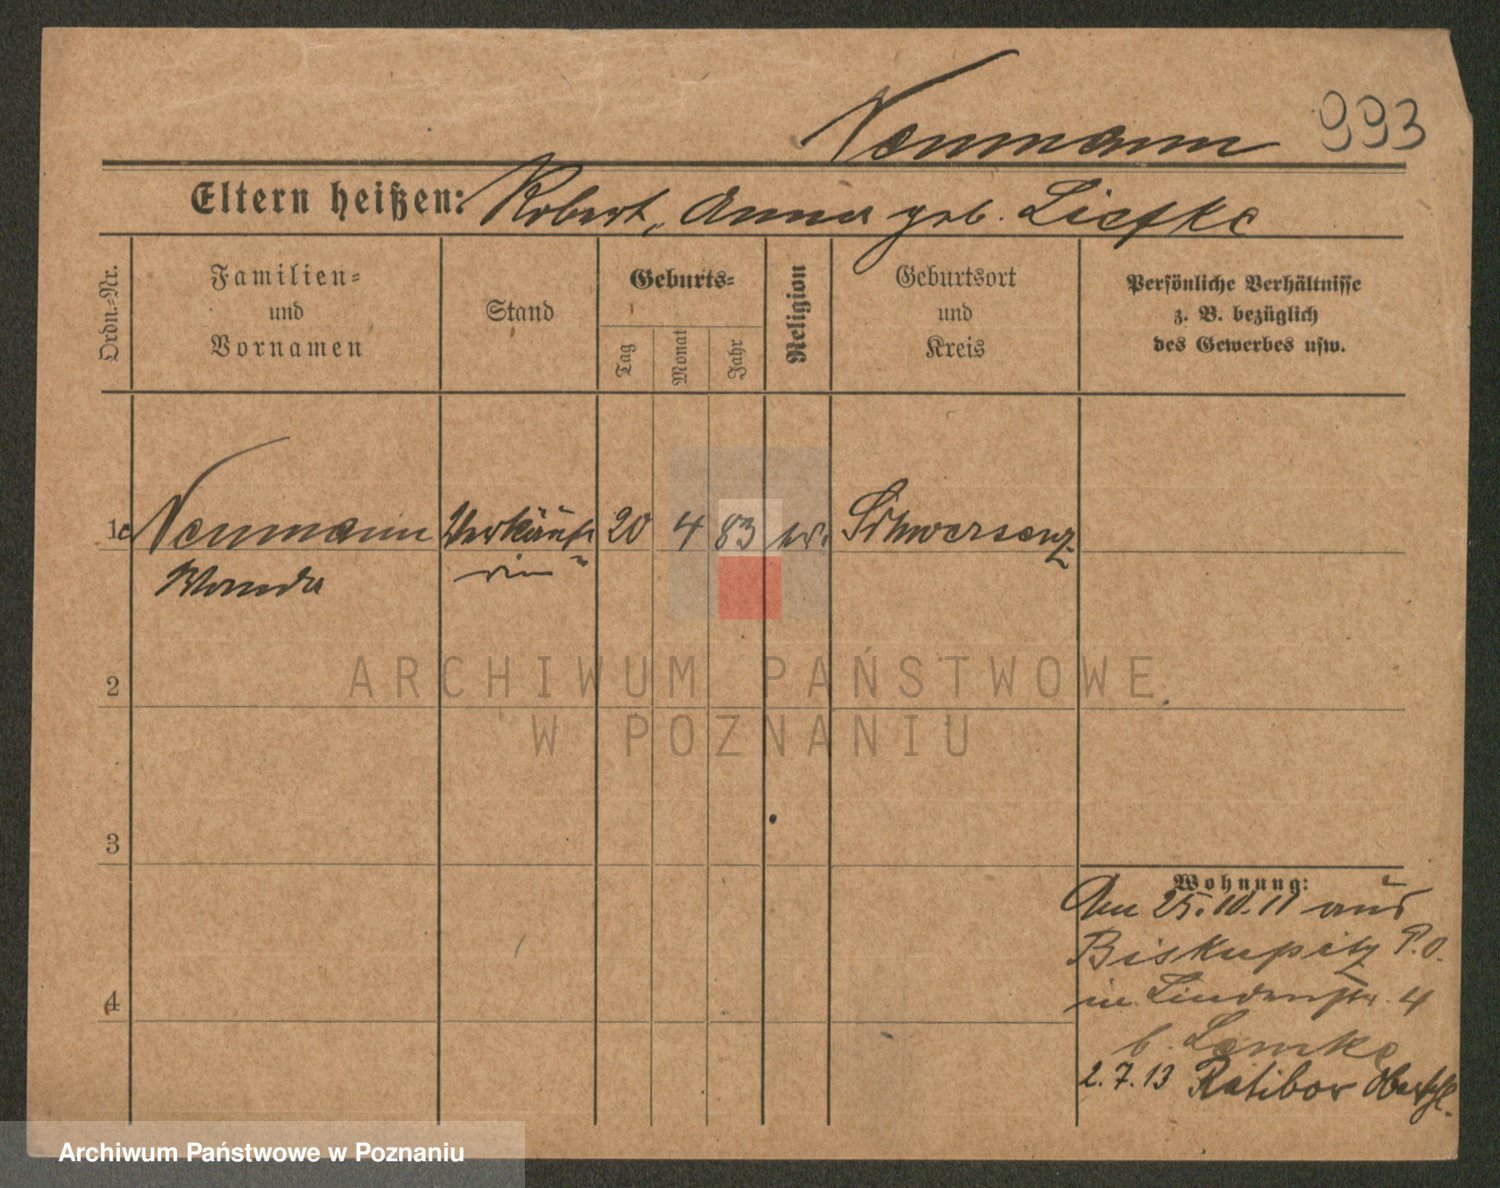 Neumann 993
Eltern heißen: Robert, Anna geb. Liefke
Ordn.-Nr.
Familien-
und
Vornamen
Stand
Geburts-
Tag
Monat
Jahr
Religion
Geburtsort
und
Kreis
Persönliche Verhältnisse
z. B. bezüglich
des Gewerbes usw.
1 Neumann Verkäufe 20 4 83 Schwersenz
Wanda rin
2
3
4
Wohnung:
Am 25.10.11 aus
Biskupitz P.O.
in Lindenstr. 4
b. Lemke
2.7.13 Ratibor Oberschl.
ARCHIWUM PAŃSTWOWE
W POZNANIU
Archiwum Państwowe w Poznaniu